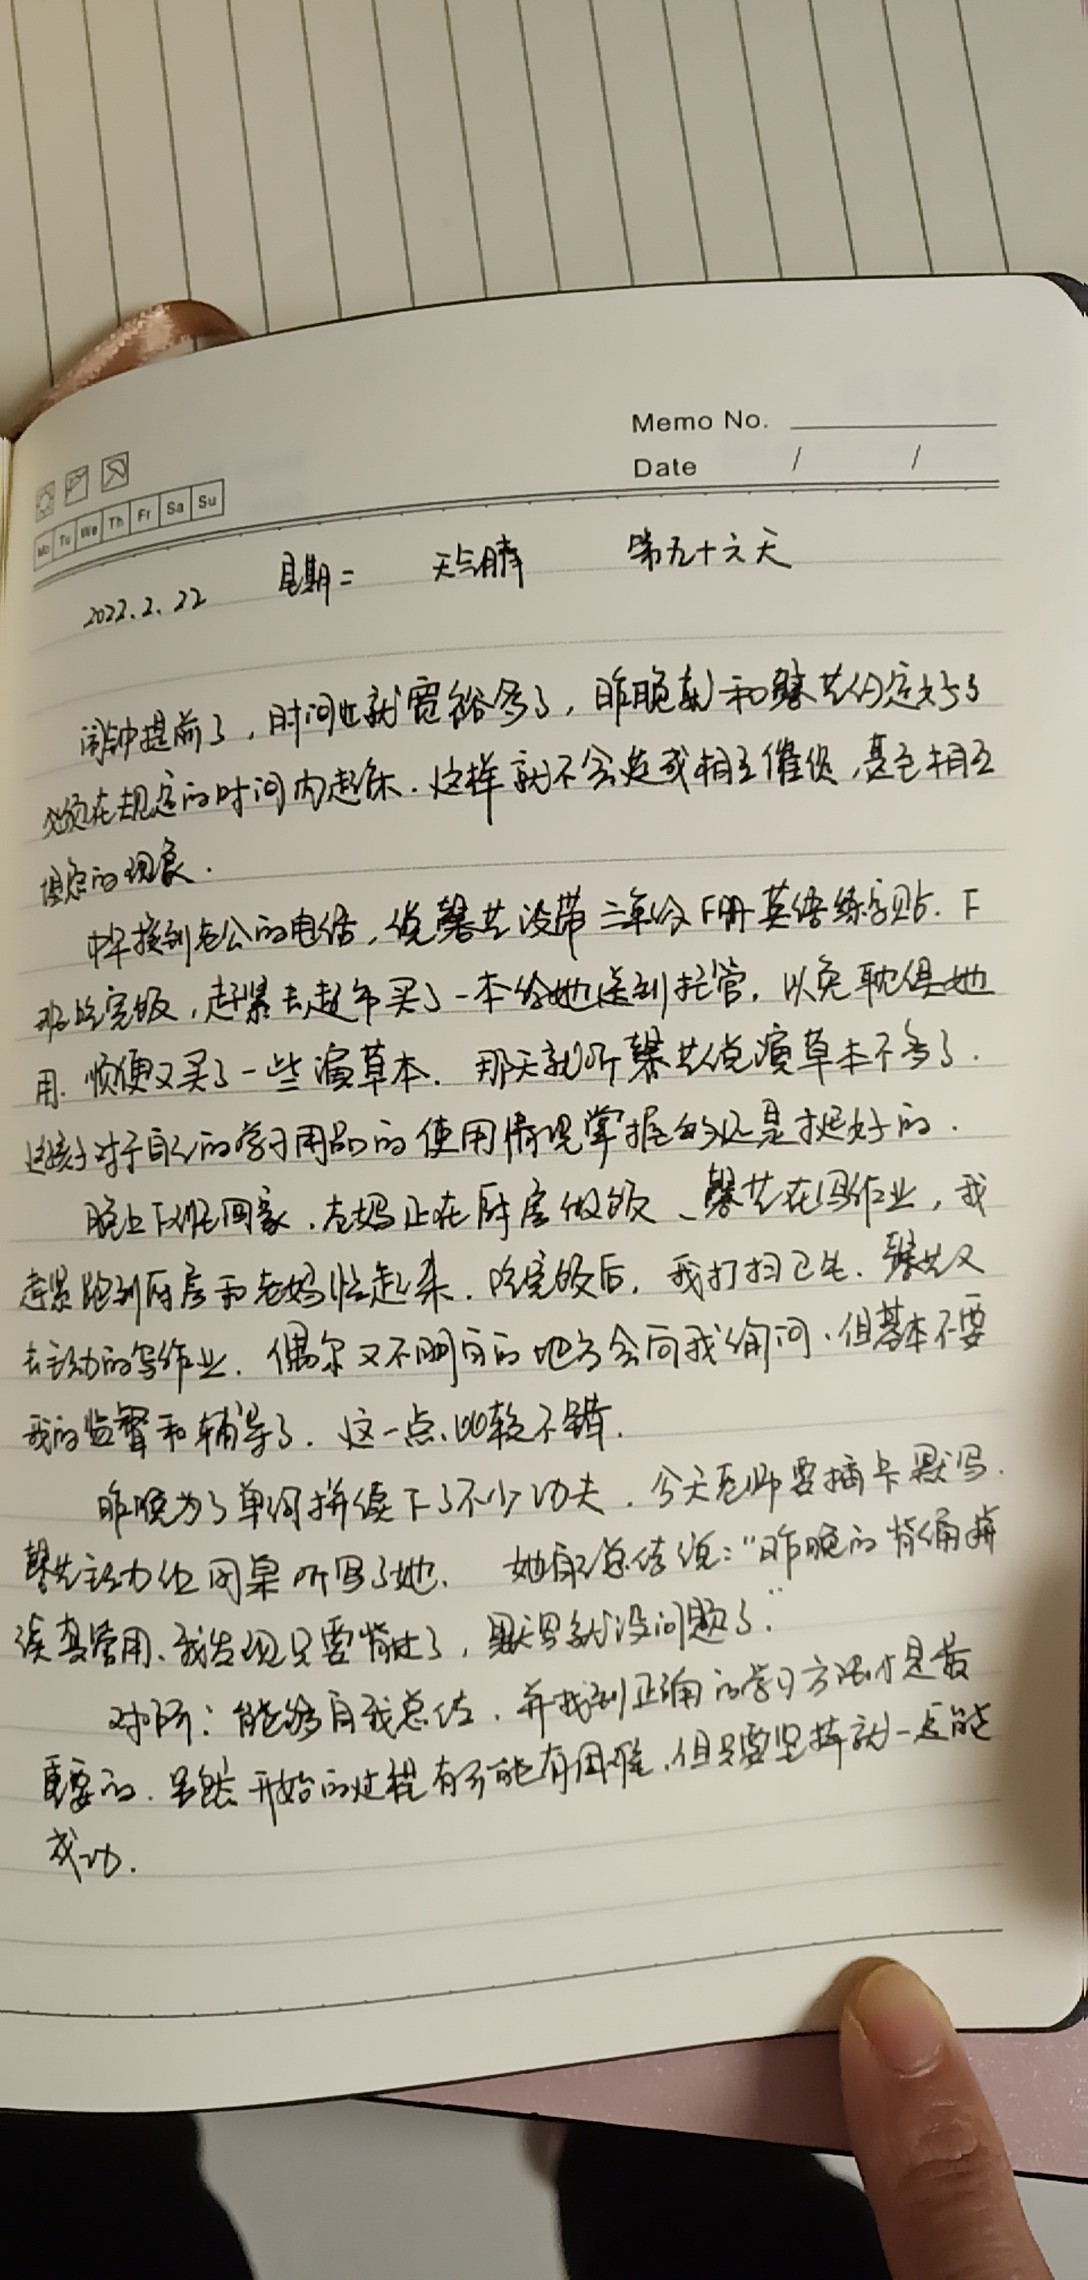 Memo No.
Date / /
Mo Tu We Th Fr Sa Su
2022.2.22 星期二 天气晴 第五十六天
闹钟提前了，时间也就宽裕多了，昨晚就和馨艺约定好了
必须在规定的时间内起床.这样就不会造成相互催促,甚至相互
埋怨的现象.
中午接到老公的电话,说馨艺没带三年级下册英语练字贴.下
班吃完饭,赶紧去超市买了一本给她送到托管.以免耽误她
用.顺便又买了一些演草本.那天就听馨艺说演草本不多了.
这孩子对于自己的学习用品的使用情况掌握的还是挺好的.
晚上下班回家.老妈正在厨房做饭、馨艺在写作业,我
赶紧跑到厨房和老妈忙起来.吃完饭后,我打扫卫生.馨艺又
去主动的写作业.偶尔又不明白的地方会向我询问.但基本不要
我的监督和辅导了.这一点比较不错.
昨晚为了单词拼读下了不少功夫.今天老师要插卡默写.
馨艺主动让同桌听写了她.她自己总结说:"昨晚的背诵拼
读真管用、我发现只要背过了,默写就没问题了."
对呀:能够自我总结.并找到正确的学习方法才是最
重要的.虽然开始的过程有可能有困难.但只要坚持就一定能
成功.